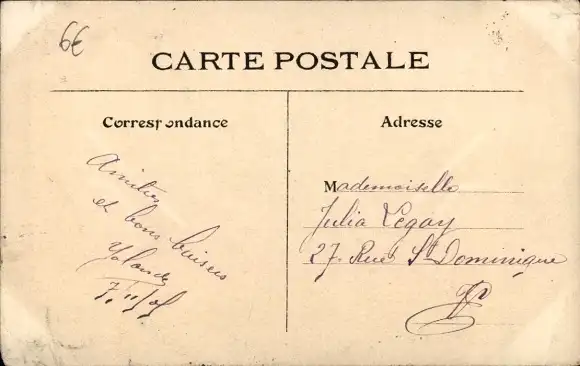 6€
CARTE POSTALE
Correspondance
Adresse
Amitiés
et bons baisers
Yolande
7.11/05
Mademoiselle
Julia Legay
27. Rue St Dominique